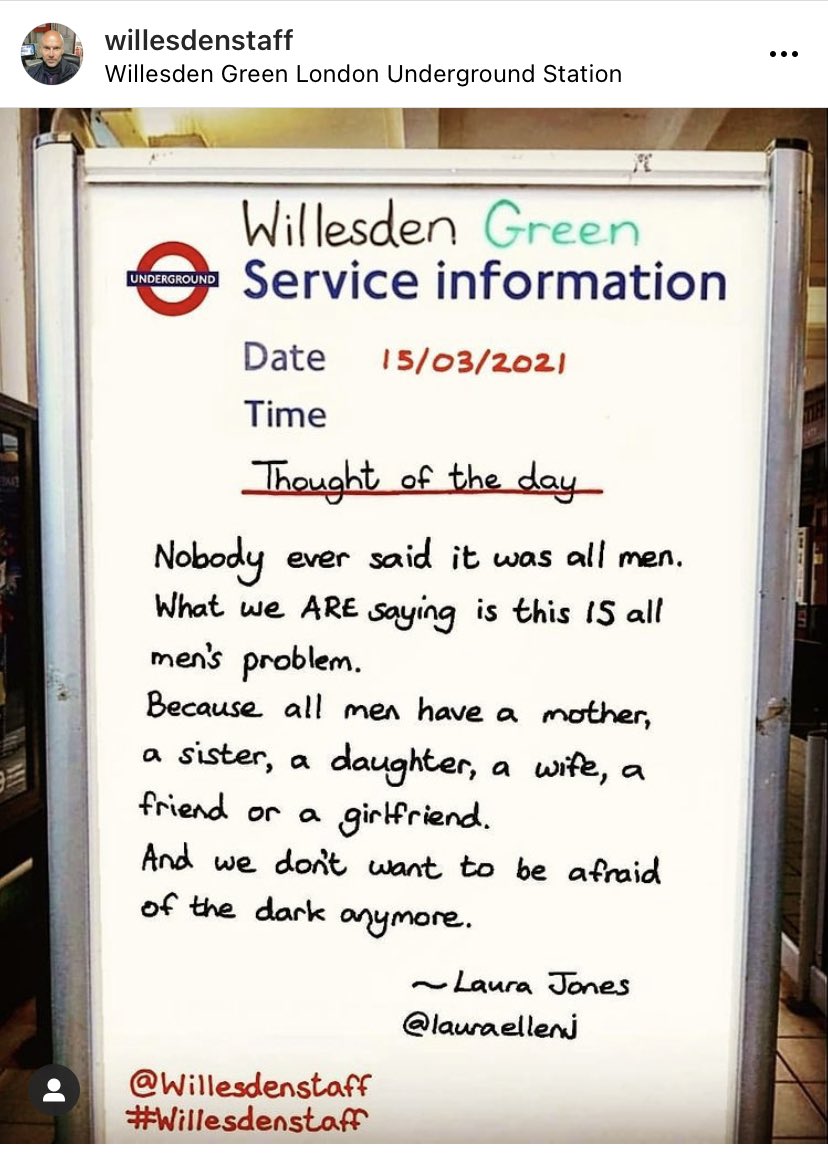 willesdenstaff
Willesden Green London Underground Station
Willesden Green
UNDERGROUND
Service information
Date 15/03/2021
Time
Thought of the day
Nobody ever said it was all men.
What we ARE saying is this IS all
men's problem.
Because all men have a mother,
a sister, a daughter, a wife, a
friend or a girlfriend.
And we don't want to be afraid
of the dark anymore.
~ Laura Jones
@lauraellenj
@Willesdenstaff
#Willesdenstaff